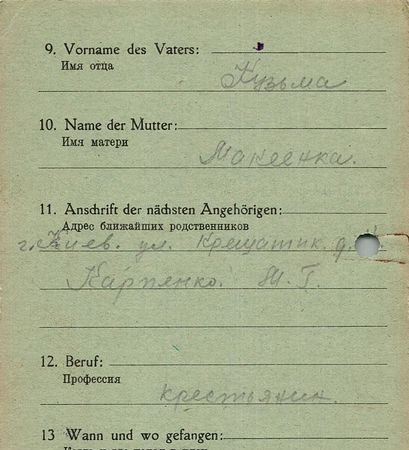 9. Vorname des Vaters:
Имя отца
Кузьма
10. Name der Mutter:
Имя матери
Макеенка.
11. Anschrift der nächsten Angehörigen:
Адрес ближайших родственников
г. Киев. ул. Крещатик. д.
Карпенко. М. Г.
12. Beruf:
Профессия
крестьянин.
13 Wann und wo gefangen: